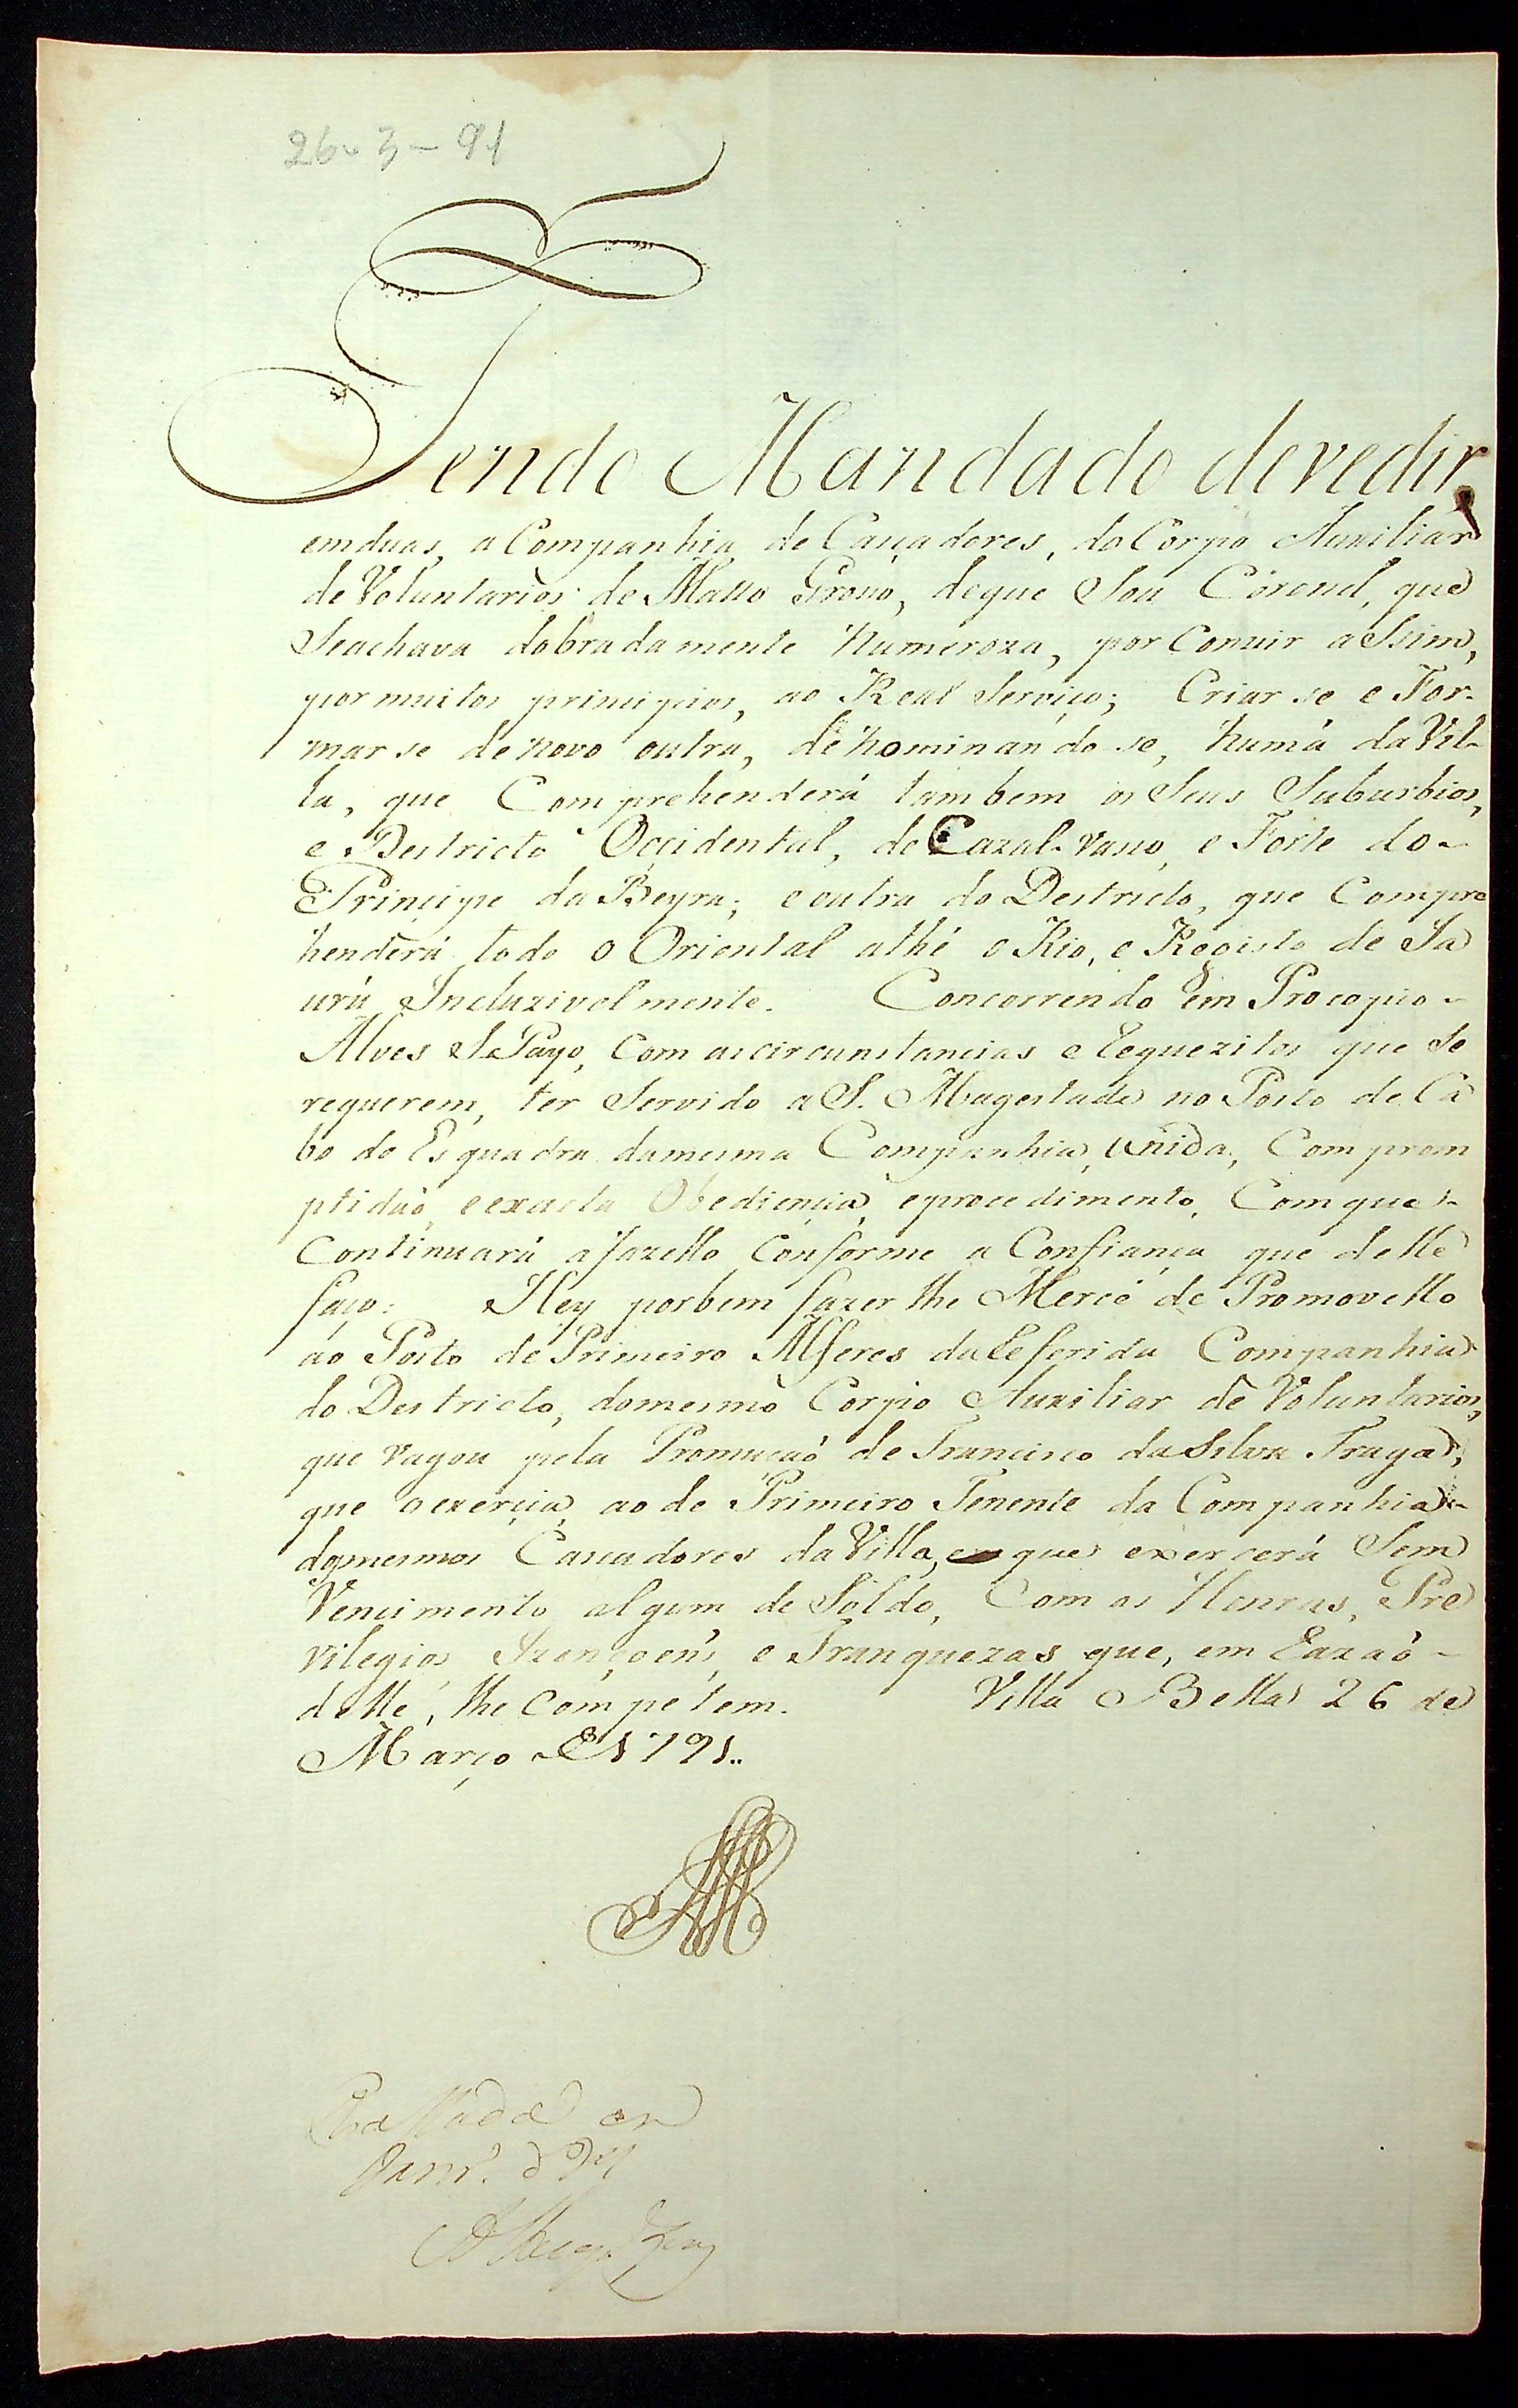 26-3-91
Tendo Mandado devedir
em duas, a Companhia de Caçadores, do Corpo Auxiliar
de Voluntarios de Matto Grosso, de que Sou Coronel, que
Seachava dobradamente Numeroza, por Convir aSsim,
por muitos principios, ao Real Serviço; Criar se e For-
mar se denovo outra, denominando se, huma da Vil-
la, que Comprehenderá tambem os Seus Suburbios,
e Destricto Occidental, de Cazal-vasco, e Forte do-
Principe da Beyra; e outra do Destricto, que Compre
henderá todo o Oriental athé o Rio, e Registo de Ja
urú Incluzivelmente. Concorrendo em Procopio-
Alves S. Payo, com as circunstancias e Requezitos que Se
requerem, ter Servido a S. Magestade no Posto de Ca
bo de Esquadra damesma Companhia, unida, Com prom
ptidaõ, e exacta Obediencia, e procedimento, Com que-
Continuará a fazello Conforme a Confiança que delle
faço: Hey porbem fazer lhe Mercê de Promovello
ao Posto de Primeiro Alferes da Referida Companhia
do Destricto, domesmo Corpo Auxiliar de Voluntarios,
que vagou pela Promuçaõ de Francisco da Silva Fraga,
que o exercia, ao de Primeiro Tenente da Companhia-
dosmesmos Cassadores da Villa, que exercerá Sem
Vencimento algum de Soldo, Com as Honras, Pre
vilegios, Izençoens, e Franquezas que, em Razaõ-
delle, lhe Competem. Villa Bella 26 de
Março de 1791..